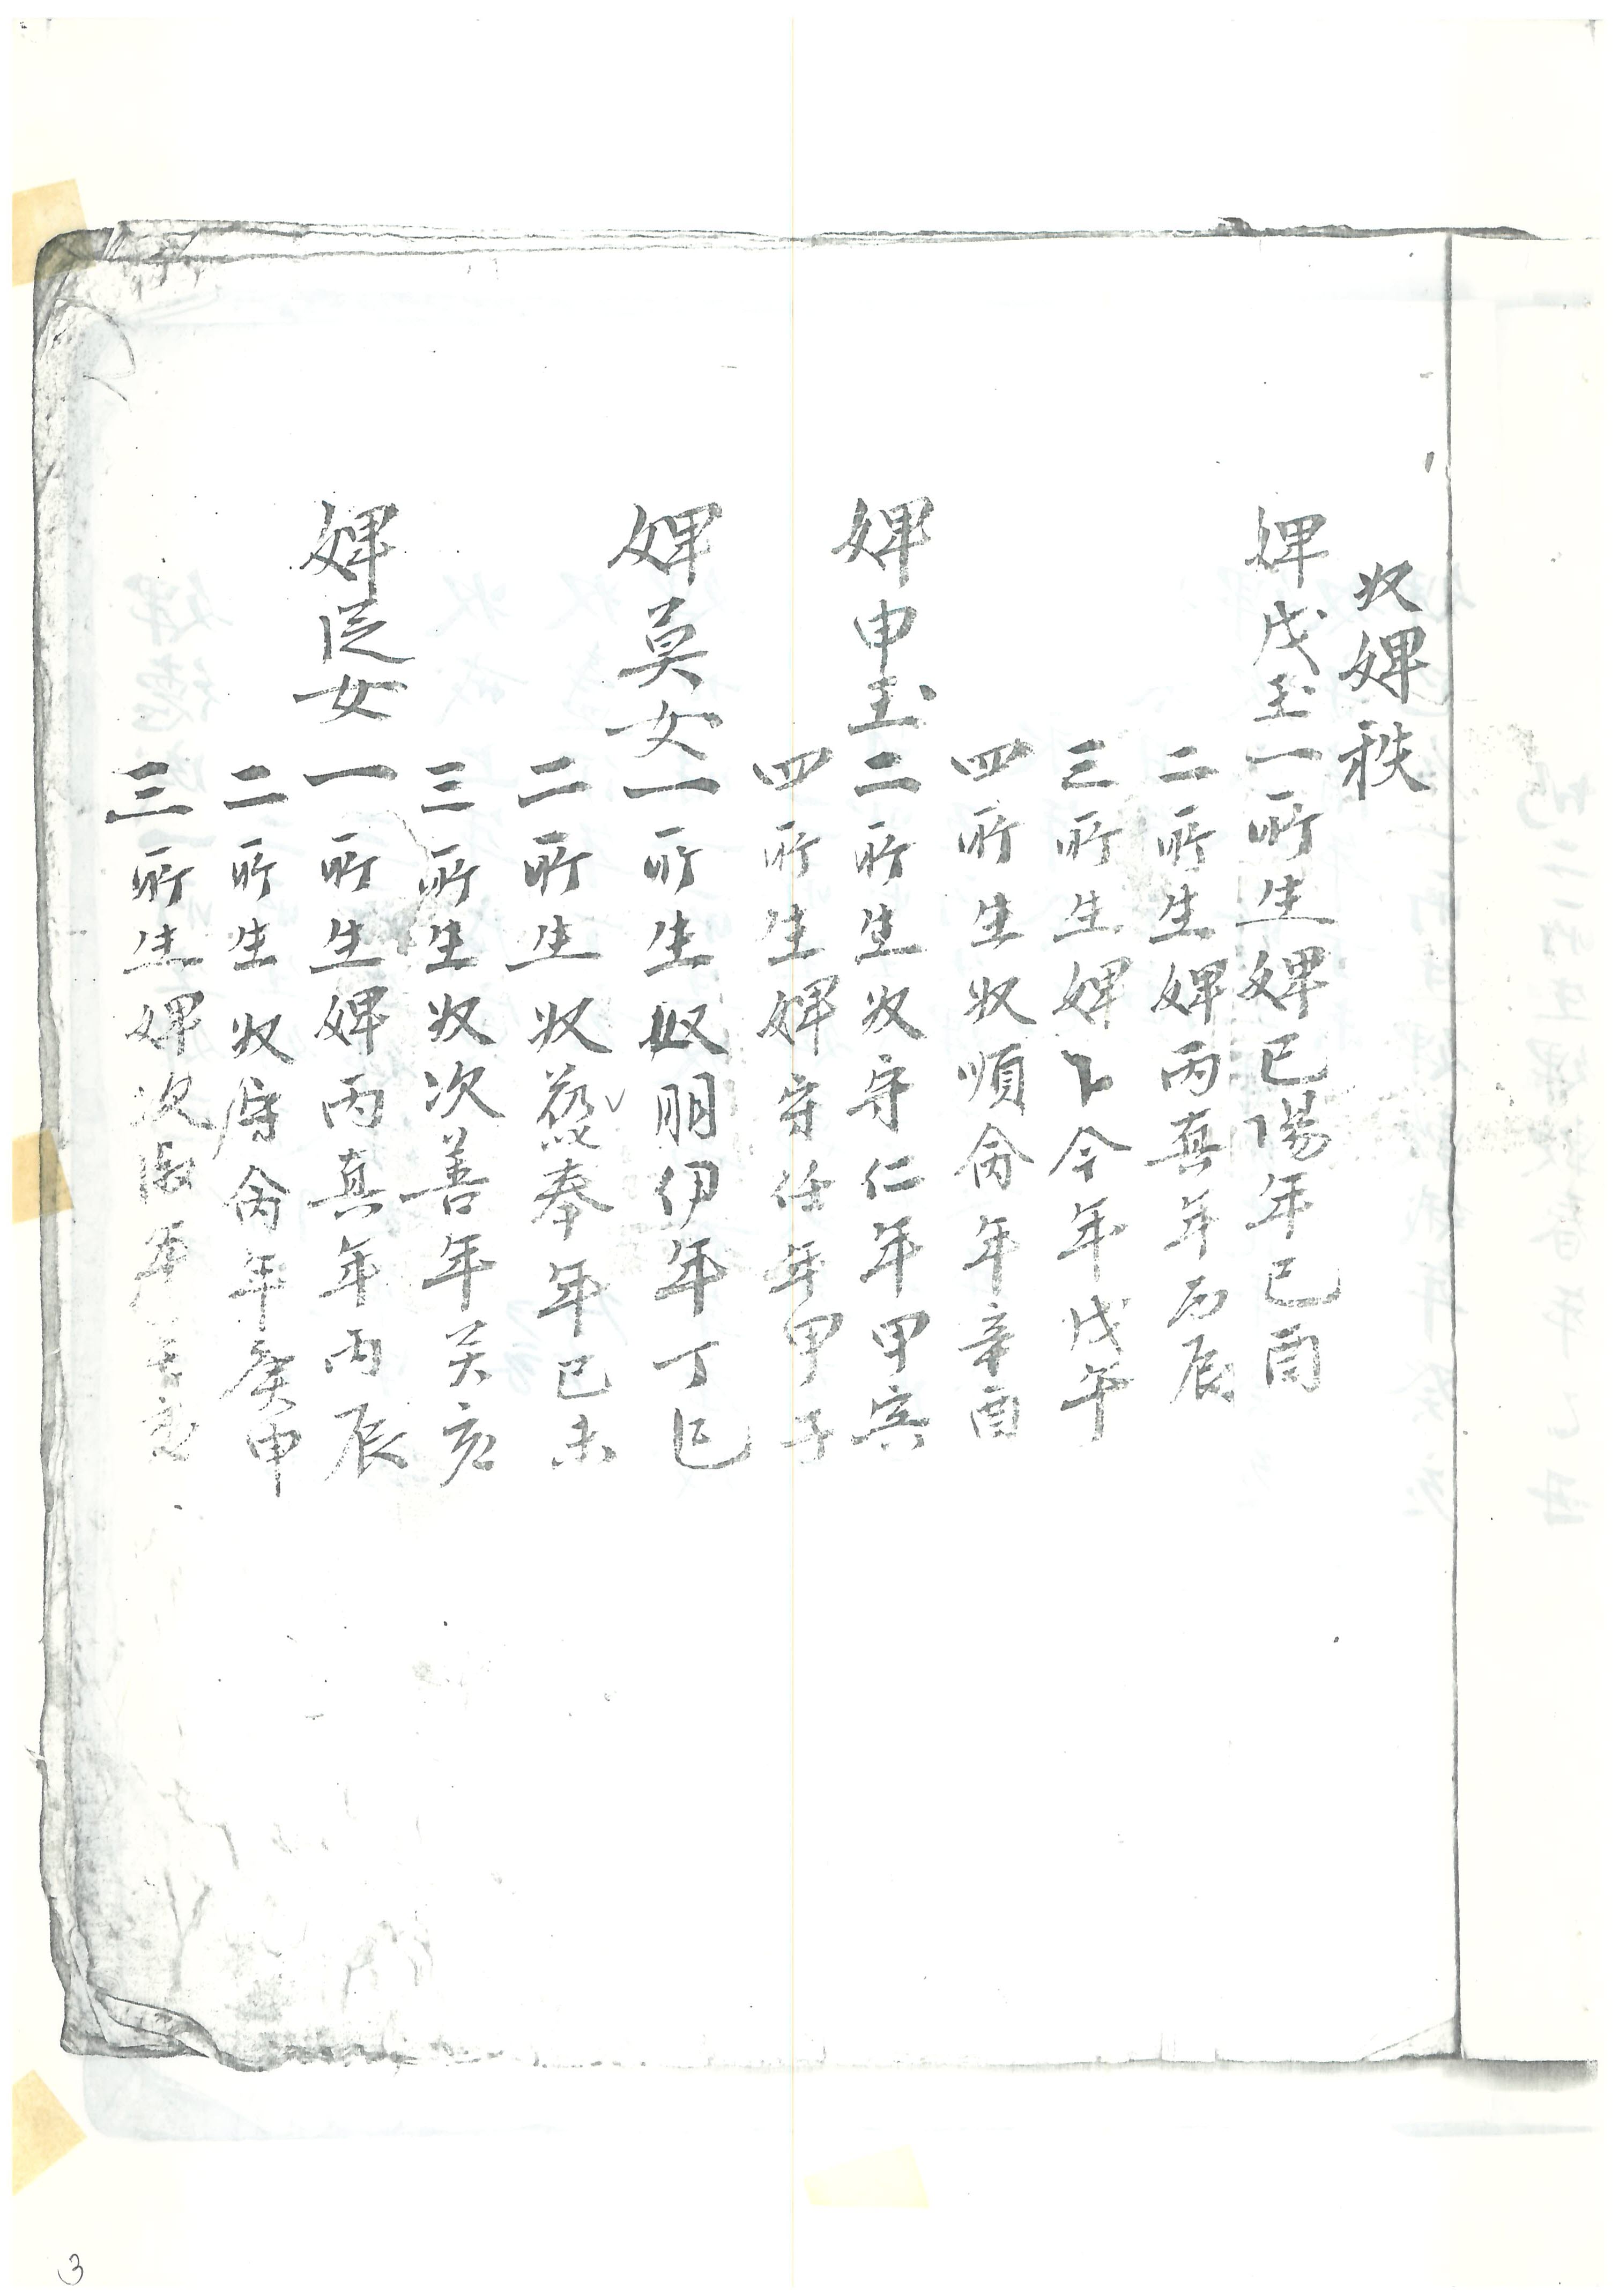 奴婢秩
婢戊玉一所生婢已陽年已酉
二所生婢丙真年丙辰
三所生婢卜今年戊午
四所生奴順侖年辛酉
婢申玉二所生奴守仁年甲寅
四所生婢守任年甲子
婢莫女一所生奴朋伊年丁巳
二所生奴奉年已未
三所生奴次善年癸亥
婢從女一所生婢丙真年丙辰
二所生奴侖年庚申
三所生婢次年
3